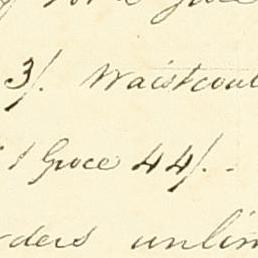 3/. Waistcoat
1 Groce 44/. -
rders unlim